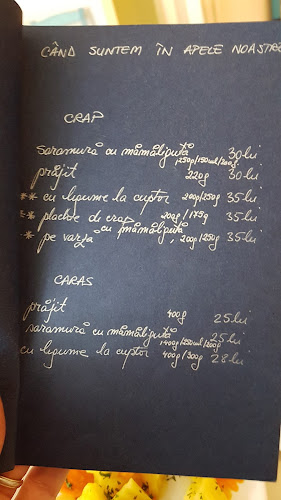 CÂND SUNTEM ÎN APELE NOASTRE
CRAP
saramură cu mămăliguță 30 lei
250g/150ml/200g
prăjit 220g 30 lei
** cu legume la cuptor 200g/250g 35 lei
* plachie di crap 200g/175g 35 lei
* pe varza cu mămăliguță, 200g/250g 35 lei
CARAS
prăjit 400g 25 lei
saramură cu mămăliguță 25 lei
400g/250ml/200g
cu legume la cuptor 400g/300g 28 lei